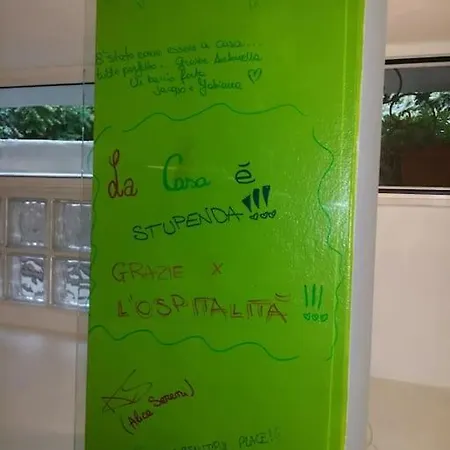 E' stato come essere a casa...
tutto perfetto. Grazie Antonella
Un bacio forte
Jacopo e Fabiana
La Casa è
STUPENDA!!!
GRAZIE x
L'OSPITALITÀ !!!
(Alice Sereni)
PLACE!!